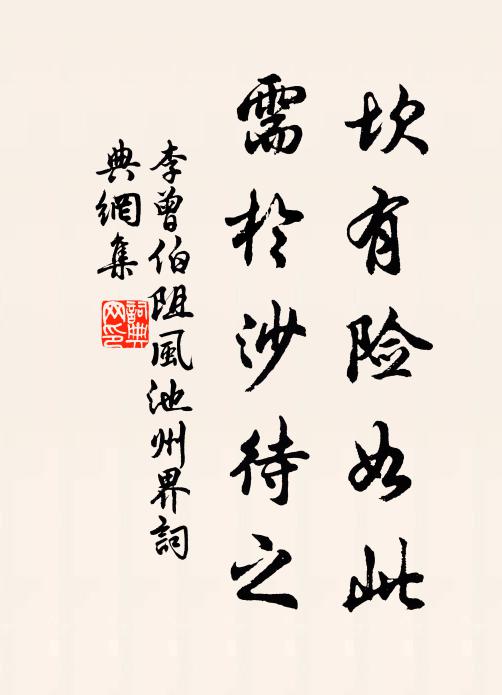 坎有险如此
需於沙待之
李曾伯阻風池州界詞
典網集
詞典
网印